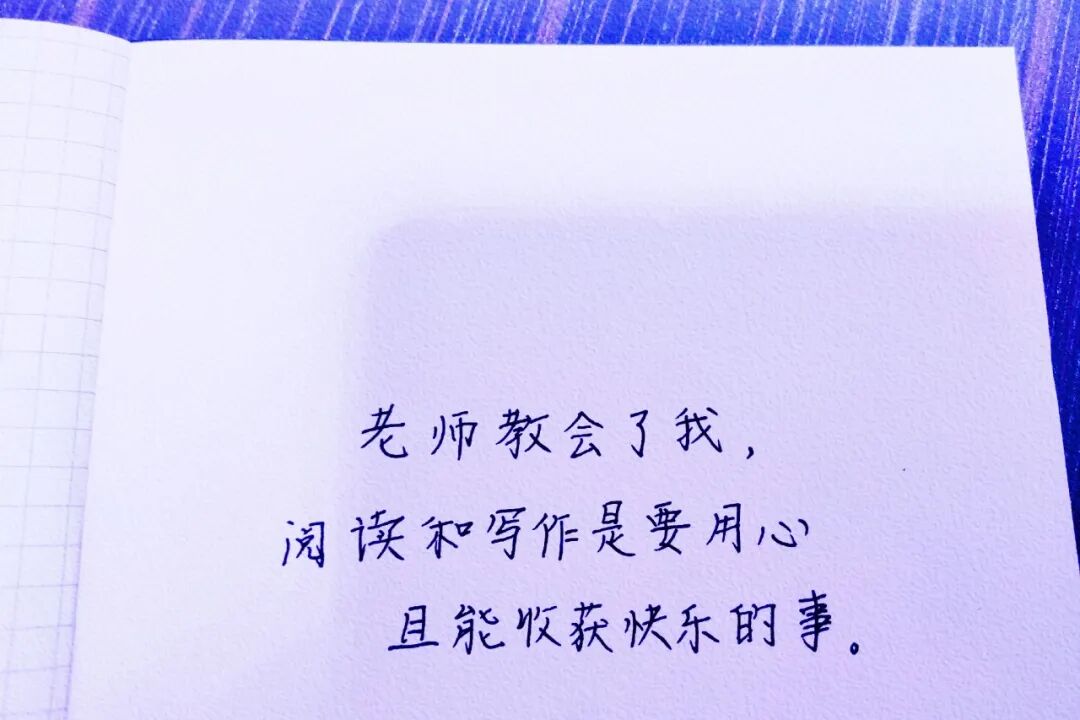 老师教会了我，
阅读和写作是要用心
且能收获快乐的事。